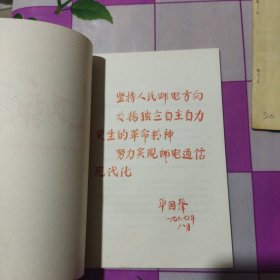 坚持人民邮电方向
发扬独立自主自力
更生的革命精神
努力实现邮电通信
现代化
八月